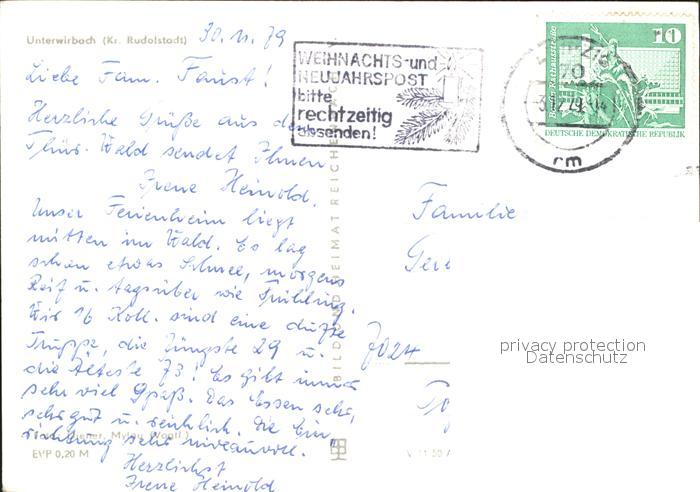 Unterwirbach (Kr. Rudolstadt)
30.11.79
Liebe Fam. Faust!
Herzliche Grüße aus dem
Thür. Wald sendet Ihnen
Irene Heinold.
Unser Ferienheim liegt
mitten im Wald. Es lag
schon etwas Schnee, morgens
Reif u. tagsüber wie Frühling.
Wir 16 Koll. sind eine dufte
Truppe, die Jüngste 29 u.
die Älteste 73! Es gibt immer
sehr viel Spaß. Das Essen sehr,
sehr gut u. reichlich. Die Ein-
richtung sehr niveauvoll.
Herzlichst
Irene Heinold
Mylau (Vogtl.)
EVP 0,20 M
BILD UND HEIMAT REICHENBACH
WEIHNACHTS- und
NEUJAHRSPOST
bitte
rechtzeitig
absenden!
70
rm
10
DEUTSCHE DEMOKRATISCHE REPUBLIK
Familie
7024
privacy protection
Datenschutz